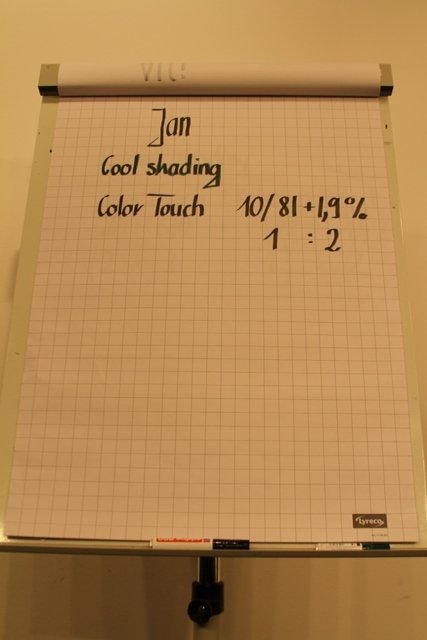 Jan
Cool shading
Color Touch 10/81 + 1,9%
1 : 2
Lyreco